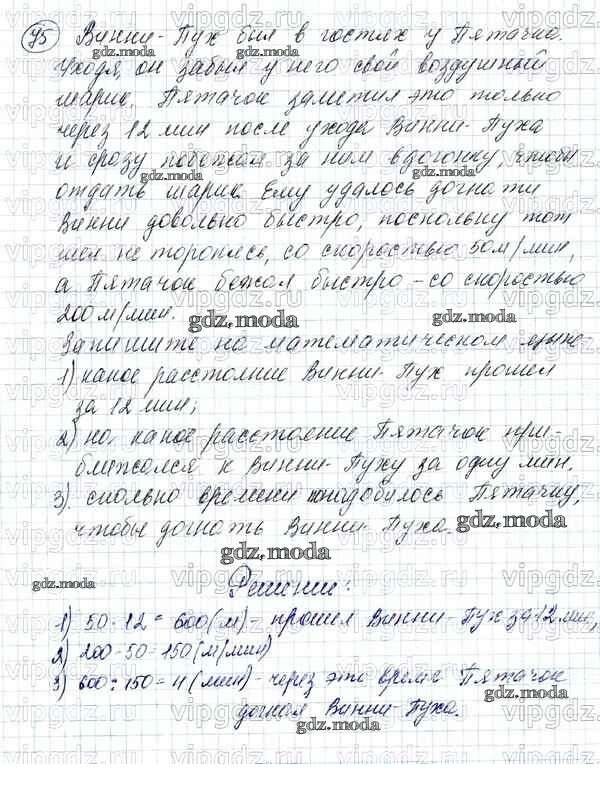 95 Винни-Пух был в гостях у Пятачка.
Уходя, он забыл у него свой воздушный
шарик. Пятачок заметил это только
через 12 мин после ухода Винни-Пуха
и сразу побежал за ним вдогонку, чтобы
отдать шарик. Ему удалось догнать
Винни довольно быстро, поскольку тот
шел не торопясь, со скоростью 50 м/мин,
а Пятачок бежал быстро - со скоростью
200 м/мин.
Запишите на математическом языке
1) какое расстояние Винни-Пух прошел
за 12 мин;
2) на какое расстояние Пятачок при-
ближался к Винни-Пуху за одну мин.
3). сколько времени понадобилось Пятачку,
чтобы догнать Винни-Пуха.
Решение:
1) 50 · 12 = 600 (м) - прошел Винни-Пух за 12 мин,
2) 200 - 50 = 150 (м/мин)
3) 600 : 150 = 4 (мин) - через это время Пятачок
догнал Винни-Пуха.
gdz.moda
vipgdz.ru